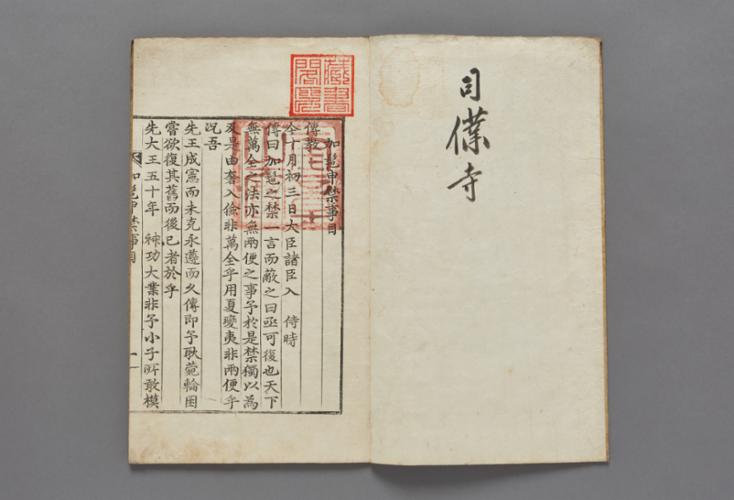 司僕寺
藏書
閣印
加髢申禁事目
傳敎
今十月初三日大臣諸臣入 侍時
傳曰加髢之禁一言而蔽之曰亟可復也天下
無萬全之法亦無兩便之事予於是禁獨以為
反是由奢入儉非萬全乎用夏變夷非兩便乎
況吾
先王成憲而未克永遵而久傳即予耿菀輪囷
嘗欲復其舊而後已者於乎
先大王五十年 神功大業非予小子所敢模
加髢申禁事目 一